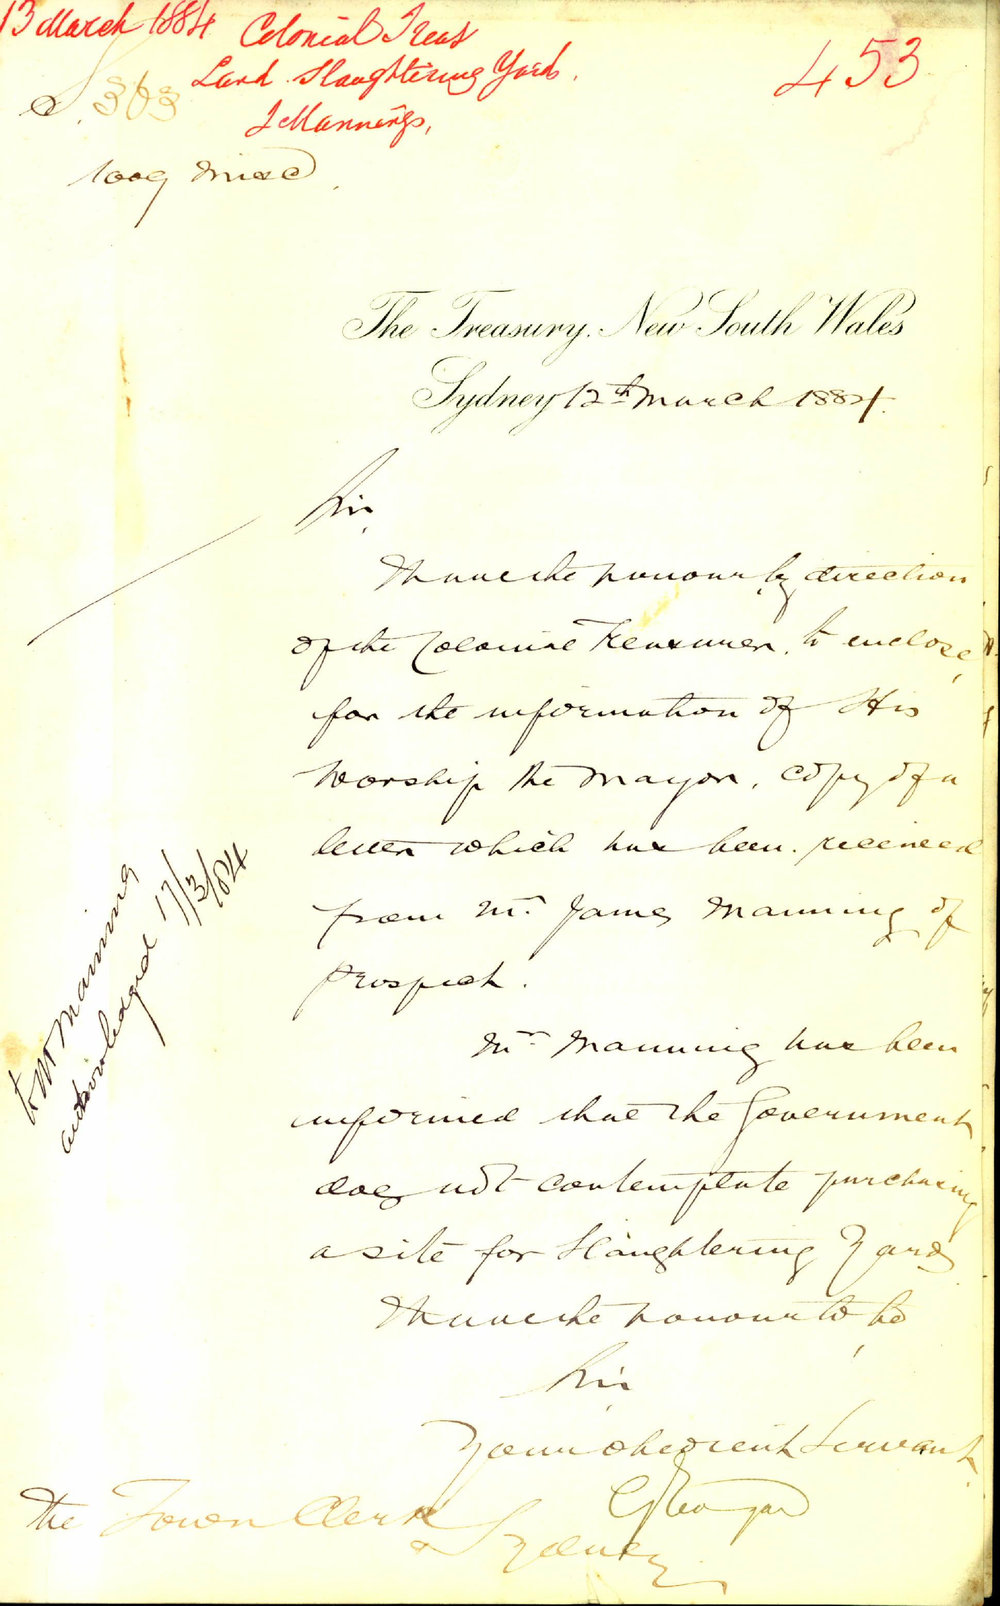 13 March 1884 Colonial Treas
Land Slaughtering Yards.
J Mannings,
453
363
1009 Misc
The Treasury, New South Wales
Sydney 12th March 1884.
Sir,
I have the honour by direction
of the Colonial Treasurer, to enclose,
for the information of His
Worship the Mayor, copy of a
letter which has been received
from Mr. James Manning of
Prospect.
Mr. Manning has been
informed that the Government
does not contemplate purchasing
a site for Slaughtering Yards
I have the honour to be
Sir
Your obedient Servant
The Town Clerk
Sydney
to Mr Manning
acknowledged 17/3/84